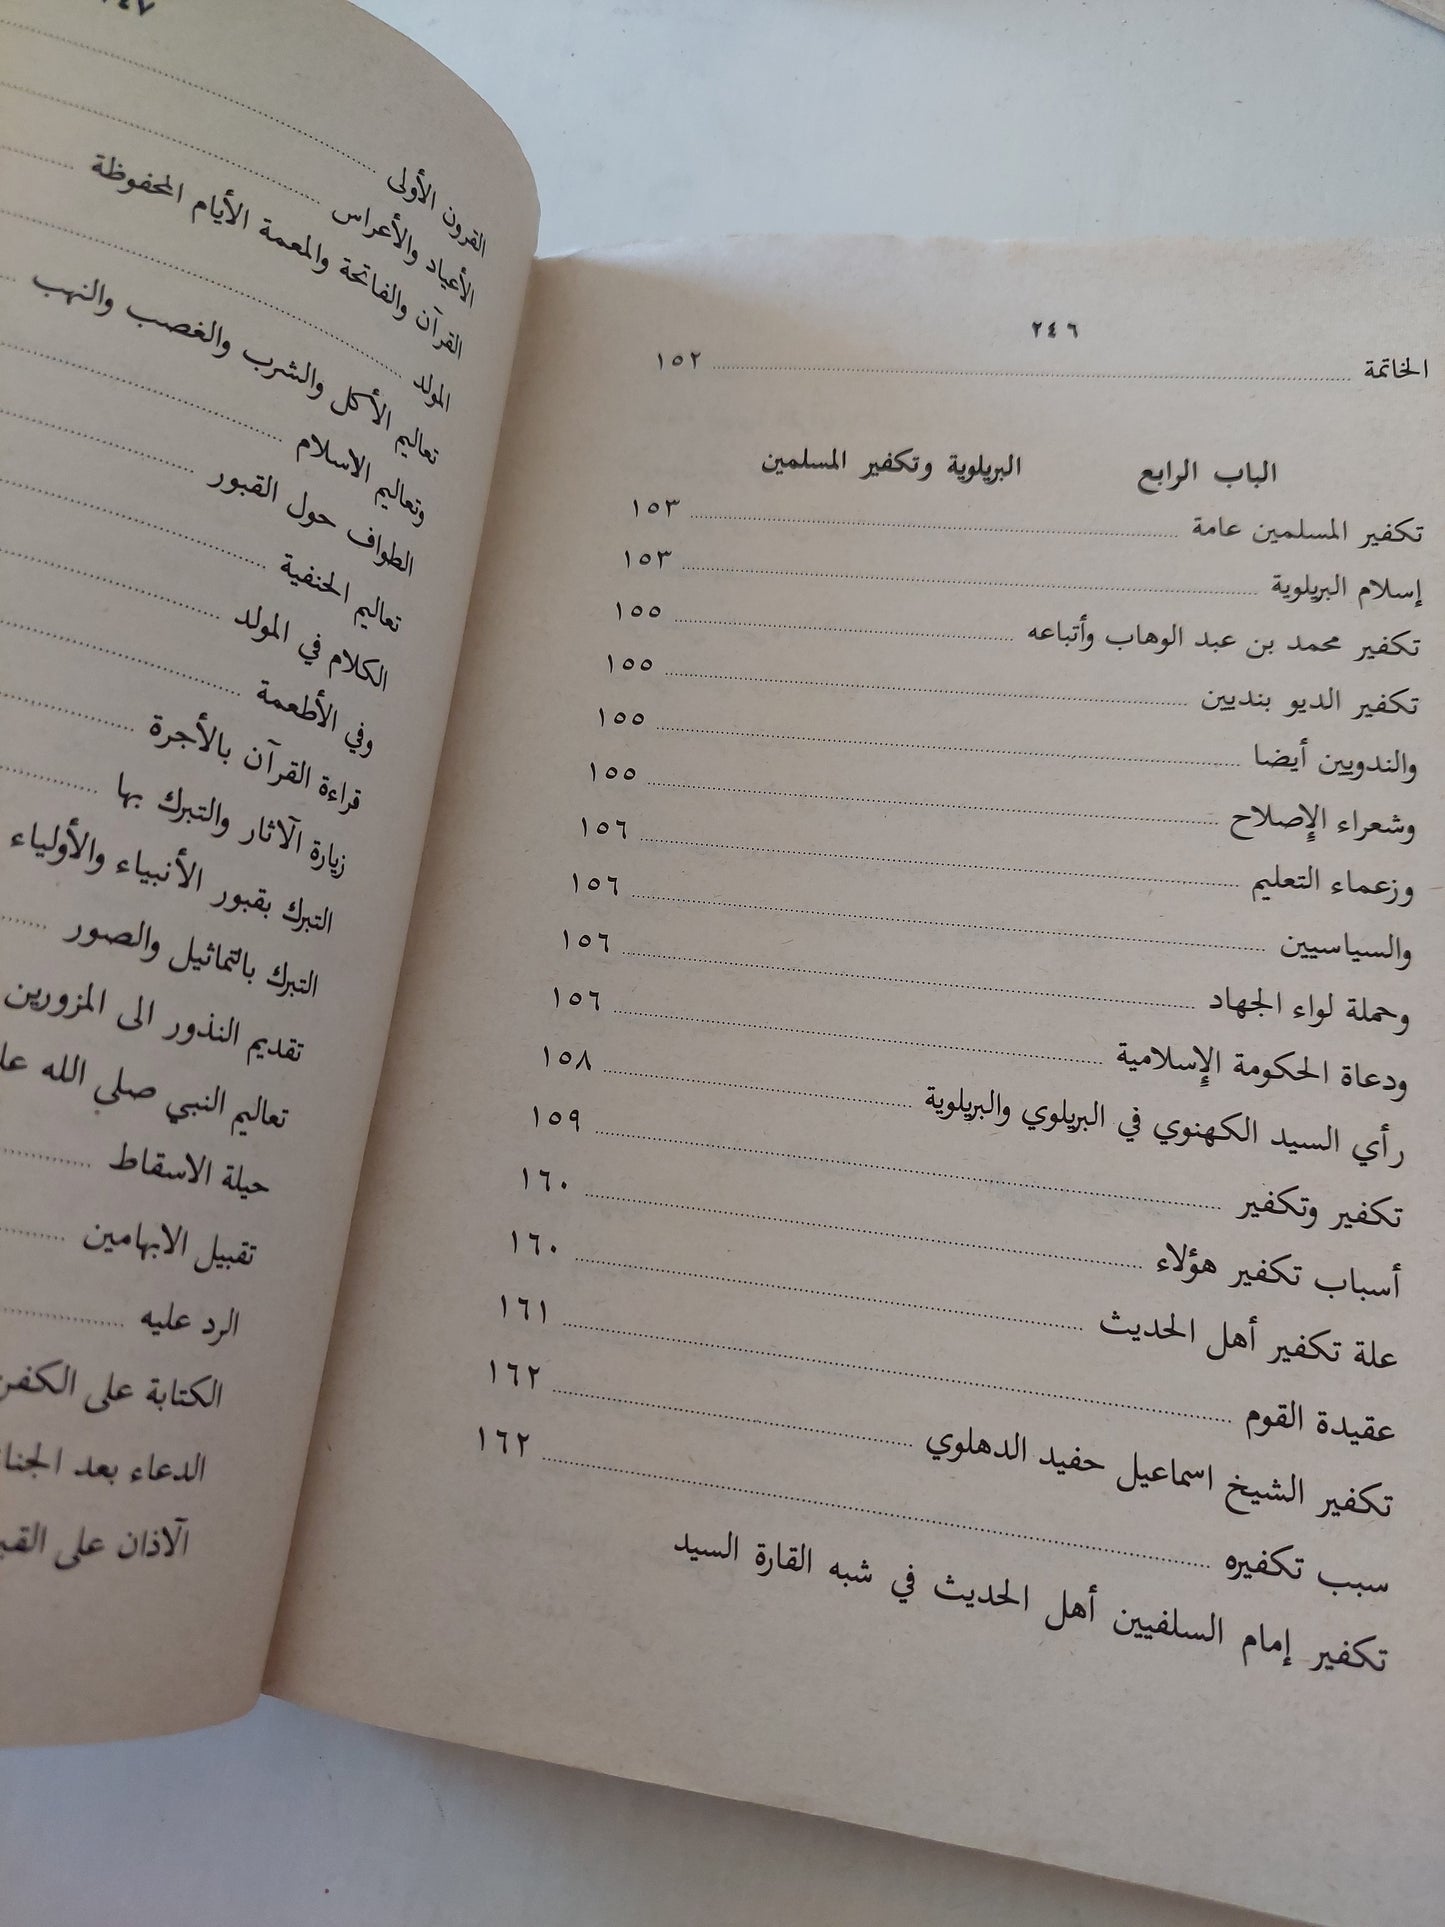 ٢٤٦
الخاتمة ........ ١٥٢
الباب الرابع البريلوية وتكفير المسلمين
تكفير المسلمين عامة ........ ١٥٣
إسلام البريلوية ........ ١٥٣
تكفير محمد بن عبد الوهاب وأتباعه ........ ١٥٥
تكفير الديو بنديين ........ ١٥٥
والندويين أيضا ........ ١٥٥
وشعراء الإصلاح ........ ١٥٥
وزعماء التعليم ........ ١٥٦
والسياسيين ........ ١٥٦
وحملة لواء الجهاد ........ ١٥٦
ودعاة الحكومة الإسلامية ........ ١٥٦
رأي السيد الكهنوي في البريلوي والبريلوية ........ ١٥٨
تكفير وتكفير ........ ١٥٩
أسباب تكفير هؤلاء ........ ١٦٠
علة تكفير أهل الحديث ........ ١٦٠
عقيدة القوم ........ ١٦١
تكفير الشيخ اسماعيل حفيد الدهلوي ........ ١٦٢
سبب تكفيره ........ ١٦٢
تكفير إمام السلفيين أهل الحديث في شبه القارة السيد
القرون الأولى ........
الأعياد والأعراس ........
القرآن والفاتحة والمعمة الأيام المحفوظة ........
المولد ........
تعاليم الأكل والشرب والغصب والنهب ........
وتعاليم الاسلام ........
الطواف حول القبور ........
تعاليم الحنفية ........
الكلام في المولد ........
وفي الأطعمة ........
قراءة القرآن بالأجرة ........
زيارة الآثار والتبرك بها ........
التبرك بقبور الأنبياء والأولياء
التبرك بالتماثيل والصور ........
تقديم النذور الى المزورين
تعاليم النبي صلى الله
حيلة الاسقاط ........
تقبيل الابهامين ........
الرد عليه ........
الكتابة على الكفن
الدعاء بعد
الآذان على